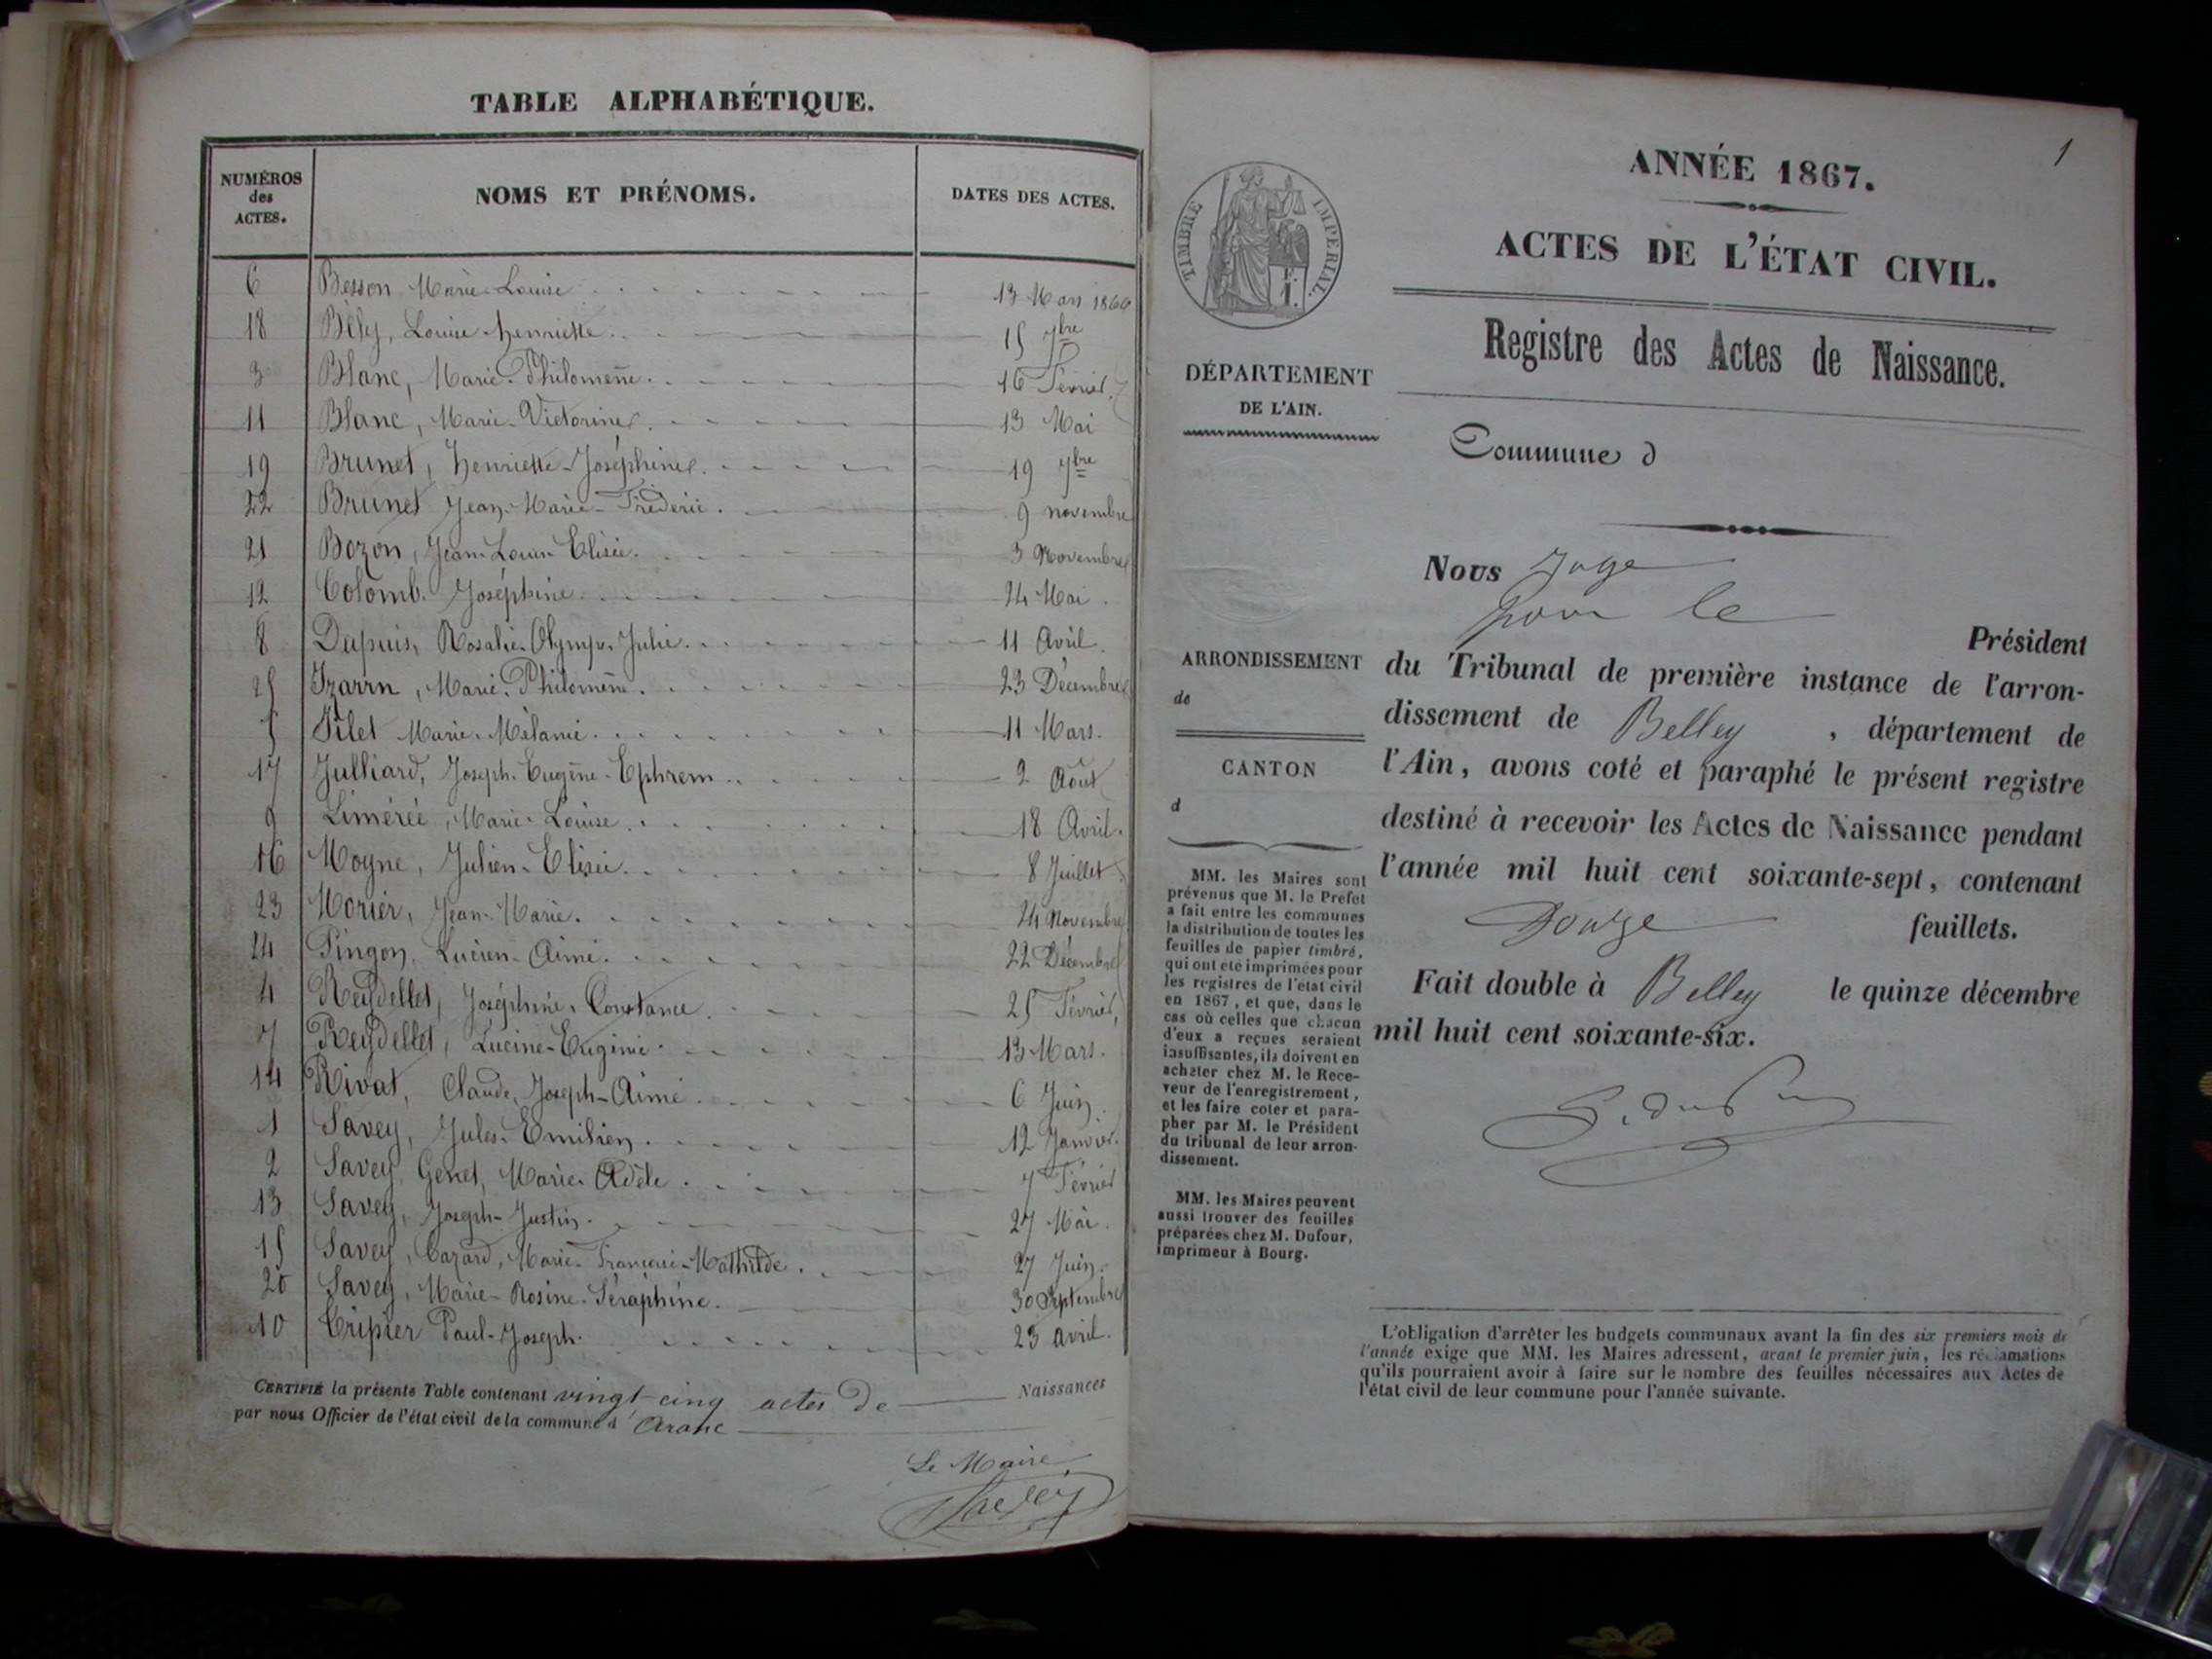 TABLE ALPHABÉTIQUE.
NUMÉROS des ACTES. NOMS ET PRÉNOMS. DATES DES ACTES.
6 Besson Marie-Louise 13 Mars 1866
18 Bély, Louise henriette 15 7bre
3 Blanc, Marie-Philomène 16 Février
11 Blanc, Marie-Victorine 13 Mai
19 Brunet, henriette-Joséphine 19 7bre
22 Brunet Jean-Marie-Fréderic 9 novembre
21 Bozon, Jean-Louis-Elisée 3 Novembre
12 Colomb. Joséphine 24 Mai
8 Dupuis, Rosalie-Olympe-Julie 11 Avril
25 Izarn, Marie-Philomène 23 Décembre
5 Marie-Mélanie 11 Mars
17 Julliard, Joseph-Eugène-Ephrem 2 Août
9 Liméréé, Marie-Louise 18 Avril
16 Moyne, Julien-Elisée 8 Juillet
23 Morier, Jean-Marie 24 Novembre
24 Pingon, Lucien-Aimé 22 Décembre
4 Reydellet, Joséphine-Constance 25 Février
7 Reydellet, Lucine-Eugénie 13 Mars
14 Rivat, Claude-Joseph-Aimé 6 Juin
1 Savey, Jules-Emilien 12 Janvier
2 Savey, Genet, Marie-Adèle 7 Février
13 Savey, Joseph-Justin 27 Mai
15 Savey, Cazard, Marie-Françoise-Mathilde 27 Juin
20 Savey, Marie-Rosine-Séraphine 30 Septembre
10 Tripier Paul-Joseph 23 avril
CERTIFIÉ la présente Table contenant vingt-cinq actes de Naissances
par nous Officier de l'état civil de la commune d'Aranc
Le Maire
Savey
1
ANNÉE 1867.
ACTES DE L'ÉTAT CIVIL.
Registre des Actes de Naissance.
TIMBRE IMPERIAL.
1 F.
DÉPARTEMENT
DE L'AIN.
Commune d
Nous Juge
pour le
Président
du Tribunal de première instance de l'arron-
dissement de Belley, département de
l'Ain, avons coté et paraphé le présent registre
destiné à recevoir les Actes de Naissance pendant
l'année mil huit cent soixante-sept, contenant
Douze feuillets.
Fait double à Belley le quinze décembre
mil huit cent soixante-six.
ARRONDISSEMENT
de
CANTON
d
MM. les Maires sont
prévenus que M. le Prefet
a fait entre les communes
la distribution de toutes les
feuilles de papier timbré,
qui ont été imprimées pour
les registres de l'état civil
en 1867, et que, dans le
cas où celles que chacun
d'eux a reçues seraient
insuffisantes, ils doivent en
acheter chez M. le Rece-
veur de l'enregistrement,
et les faire coter et para-
pher par M. le Président
du tribunal de leur arron-
dissement.
MM. les Maires peuvent
aussi trouver des feuilles
préparées chez M. Dufour,
imprimeur à Bourg.
L'obligation d'arrêter les budgets communaux avant la fin des six premiers mois de
l'année exige que MM. les Maires adressent, avant le premier juin, les réclamations
qu'ils pourraient avoir à faire sur le nombre des feuilles nécessaires aux Actes de
l'état civil de leur commune pour l'année suivante.